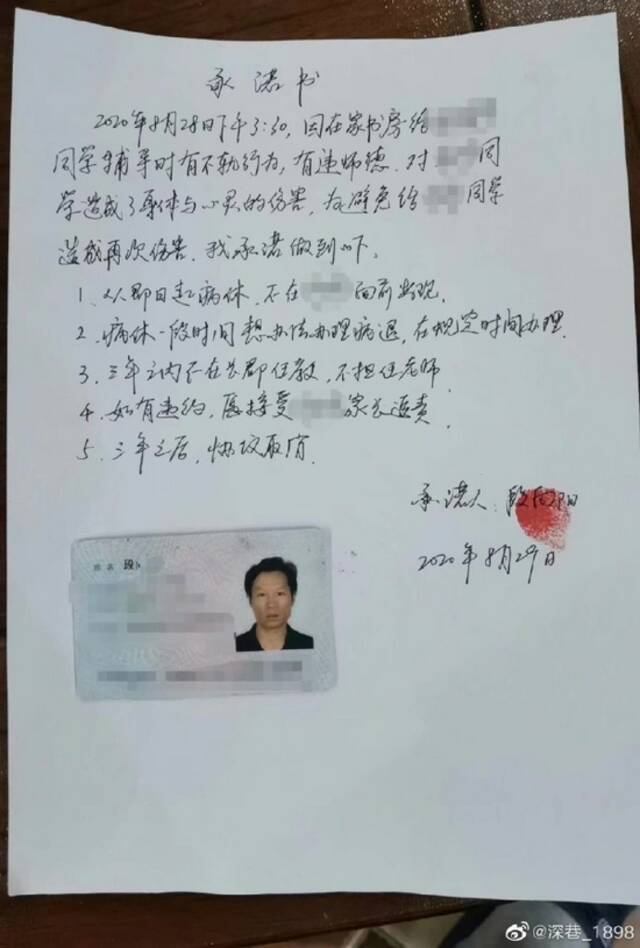 承诺书
2020年8月28日下午3:30，因在家书房给
同学辅导时有不轨行为，有违师德.对 同
学造成了身体与心灵的伤害，为避免给 同学
造成再次伤害.我承诺做到以下.
1、从即日起病休，不在 面前出现.
2、病休一段时间想办法办理病退，在规定时间办理.
3、三年之内不在长郡任教，不担任老师.
4、如有违约，愿接受 家长追责.
5、三年之后，协议取消.
承诺人：段向阳
2020年8月29日
姓名 段
@深巷_1898